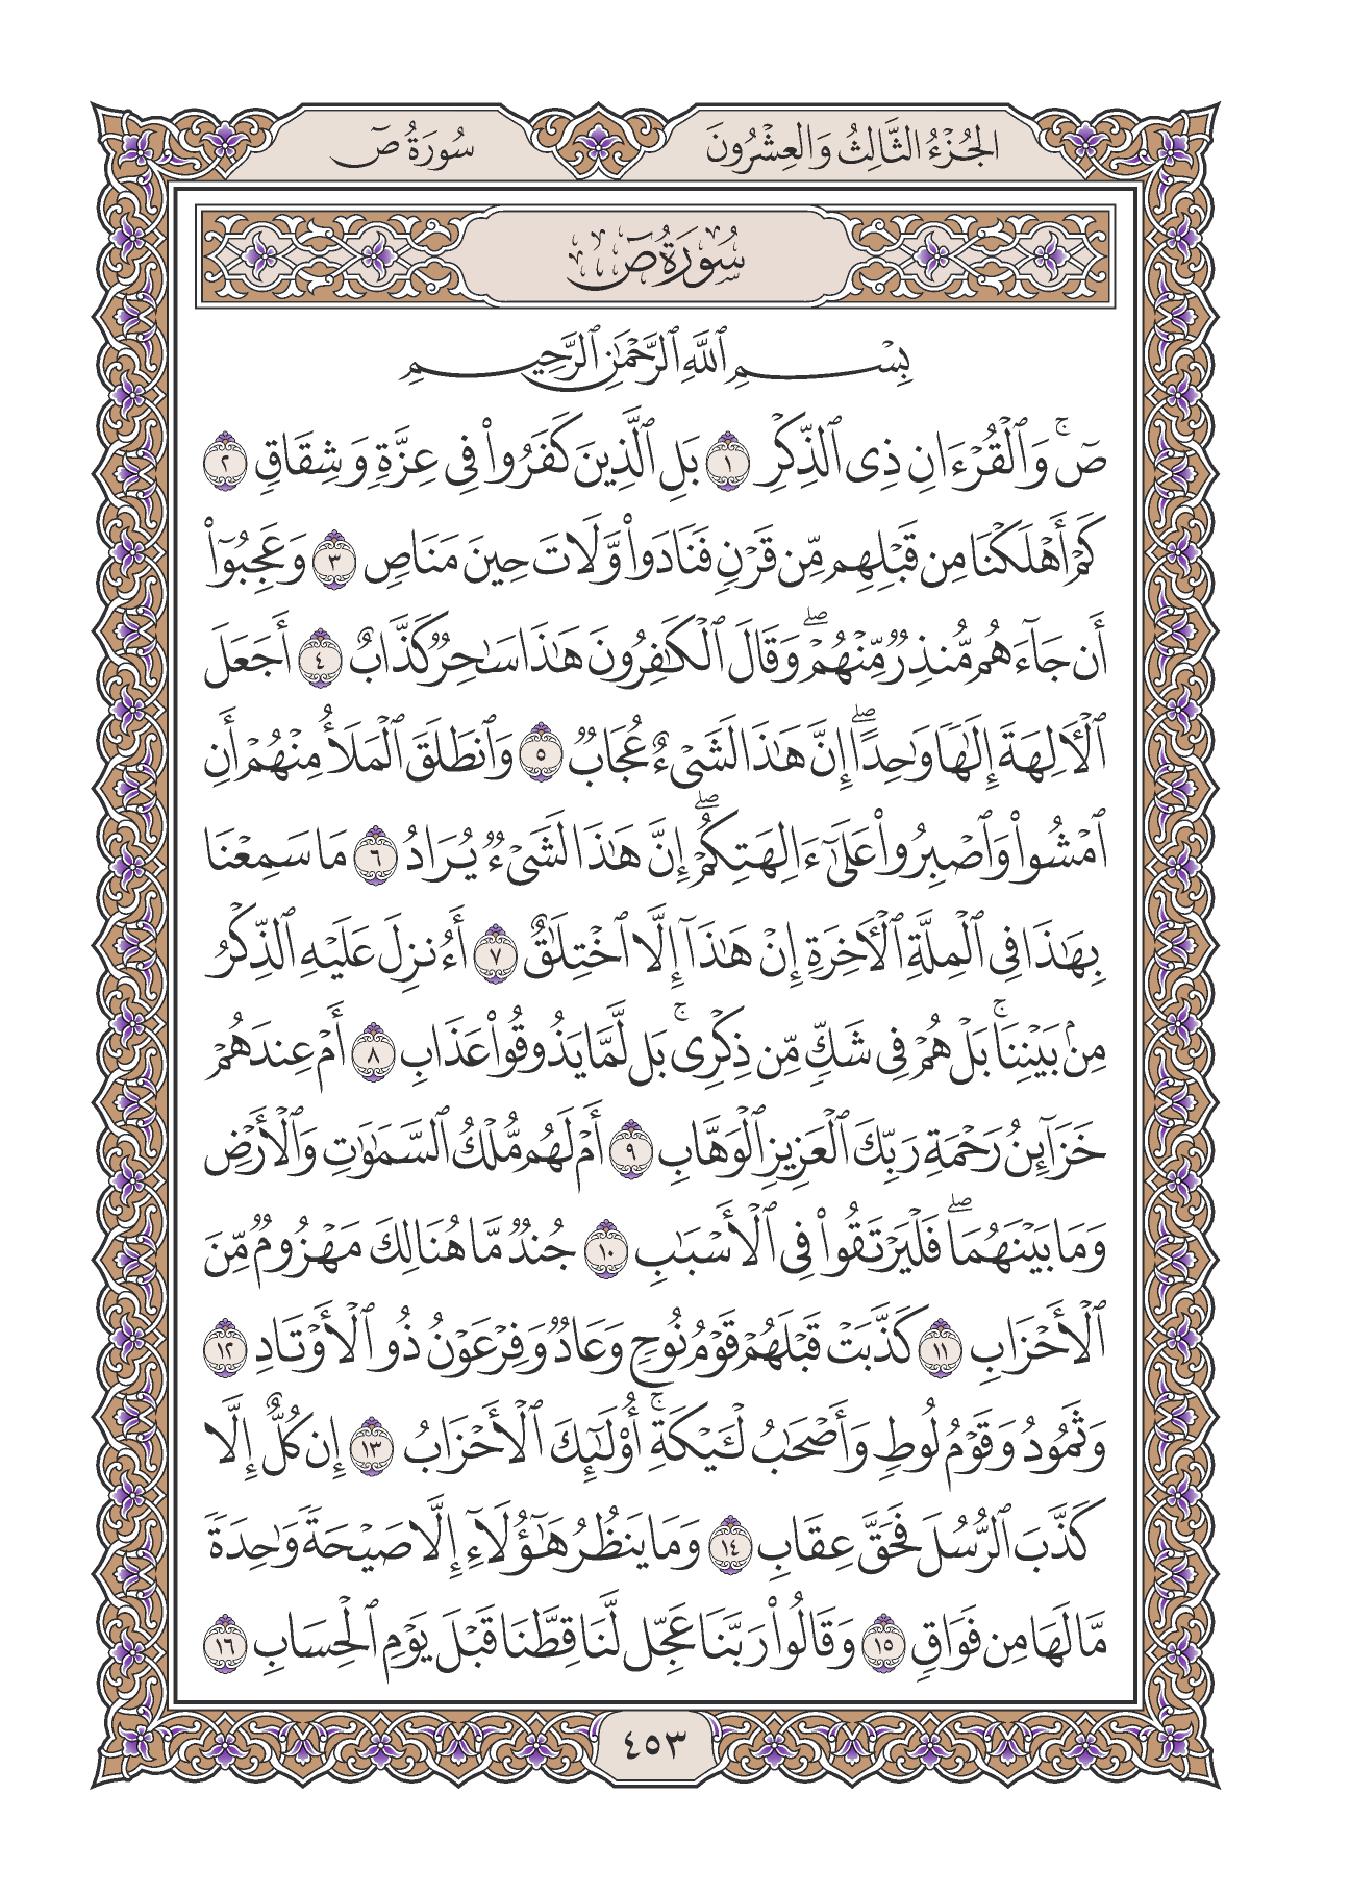 الجُزْءُ الثَّالِثُ وَالعِشْرُونَ
سُورَةُ صٓ
سُورَةُ صٓ
بِسْمِ ٱللَّهِ ٱلرَّحْمَٰنِ ٱلرَّحِيمِ
صٓۚ وَٱلْقُرْءَانِ ذِى ٱلذِّكْرِ ١ بَلِ ٱلَّذِينَ كَفَرُوا۟ فِى عِزَّةٍ وَشِقَاقٍ ٢
كَمْ أَهْلَكْنَا مِن قَبْلِهِم مِّن قَرْنٍ فَنَادَوا۟ وَّلَاتَ حِينَ مَنَاصٍ ٣ وَعَجِبُوٓا۟
أَن جَآءَهُم مُّنذِرٌ مِّنْهُمْۖ وَقَالَ ٱلْكَٰفِرُونَ هَٰذَا سَٰحِرٌ كَذَّابٌ ٤ أَجَعَلَ
ٱلْأَلِهَةَ إِلَٰهًا وَٰحِدًاۖ إِنَّ هَٰذَا لَشَىْءٌ عُجَابٌ ٥ وَٱنطَلَقَ ٱلْمَلَأُ مِنْهُمْ أَنِ
ٱمْشُوا۟ وَٱصْبِرُوا۟ عَلَىٰٓ ءَالِهَتِكُمْۖ إِنَّ هَٰذَا لَشَىْءٌ يُرَادُ ٦ مَا سَمِعْنَا
بِهَٰذَا فِى ٱلْمِلَّةِ ٱلْأَخِرَةِ إِنْ هَٰذَآ إِلَّا ٱخْتِلَٰقٌ ٧ أَءُنزِلَ عَلَيْهِ ٱلذِّكْرُ
مِنۢ بَيْنِنَاۚ بَلْ هُمْ فِى شَكٍّ مِّن ذِكْرِىۚ بَل لَّمَّا يَذُوقُوا۟ عَذَابِ ٨ أَمْ عِندَهُمْ
خَزَآئِنُ رَحْمَةِ رَبِّكَ ٱلْعَزِيزِ ٱلْوَهَّابِ ٩ أَمْ لَهُم مُّلْكُ ٱلسَّمَٰوَٰتِ وَٱلْأَرْضِ
وَمَا بَيْنَهُمَاۖ فَلْيَرْتَقُوا۟ فِى ٱلْأَسْبَٰبِ ١٠ جُندٌ مَّا هُنَالِكَ مَهْزُومٌ مِّنَ
ٱلْأَحْزَابِ ١١ كَذَّبَتْ قَبْلَهُمْ قَوْمُ نُوحٍ وَعَادٌ وَفِرْعَوْنُ ذُو ٱلْأَوْتَادِ ١٢
وَثَمُودُ وَقَوْمُ لُوطٍ وَأَصْحَٰبُ لْـَٔيْكَةِۚ أُو۟لَٰٓئِكَ ٱلْأَحْزَابُ ١٣ إِن كُلٌّ إِلَّا
كَذَّبَ ٱلرُّسُلَ فَحَقَّ عِقَابِ ١٤ وَمَا يَنظُرُ هَٰٓؤُلَآءِ إِلَّا صَيْحَةً وَٰحِدَةً
مَّا لَهَا مِن فَوَاقٍ ١٥ وَقَالُوا۟ رَبَّنَا عَجِّل لَّنَا قِطَّنَا قَبْلَ يَوْمِ ٱلْحِسَابِ ١٦
٤٥٣